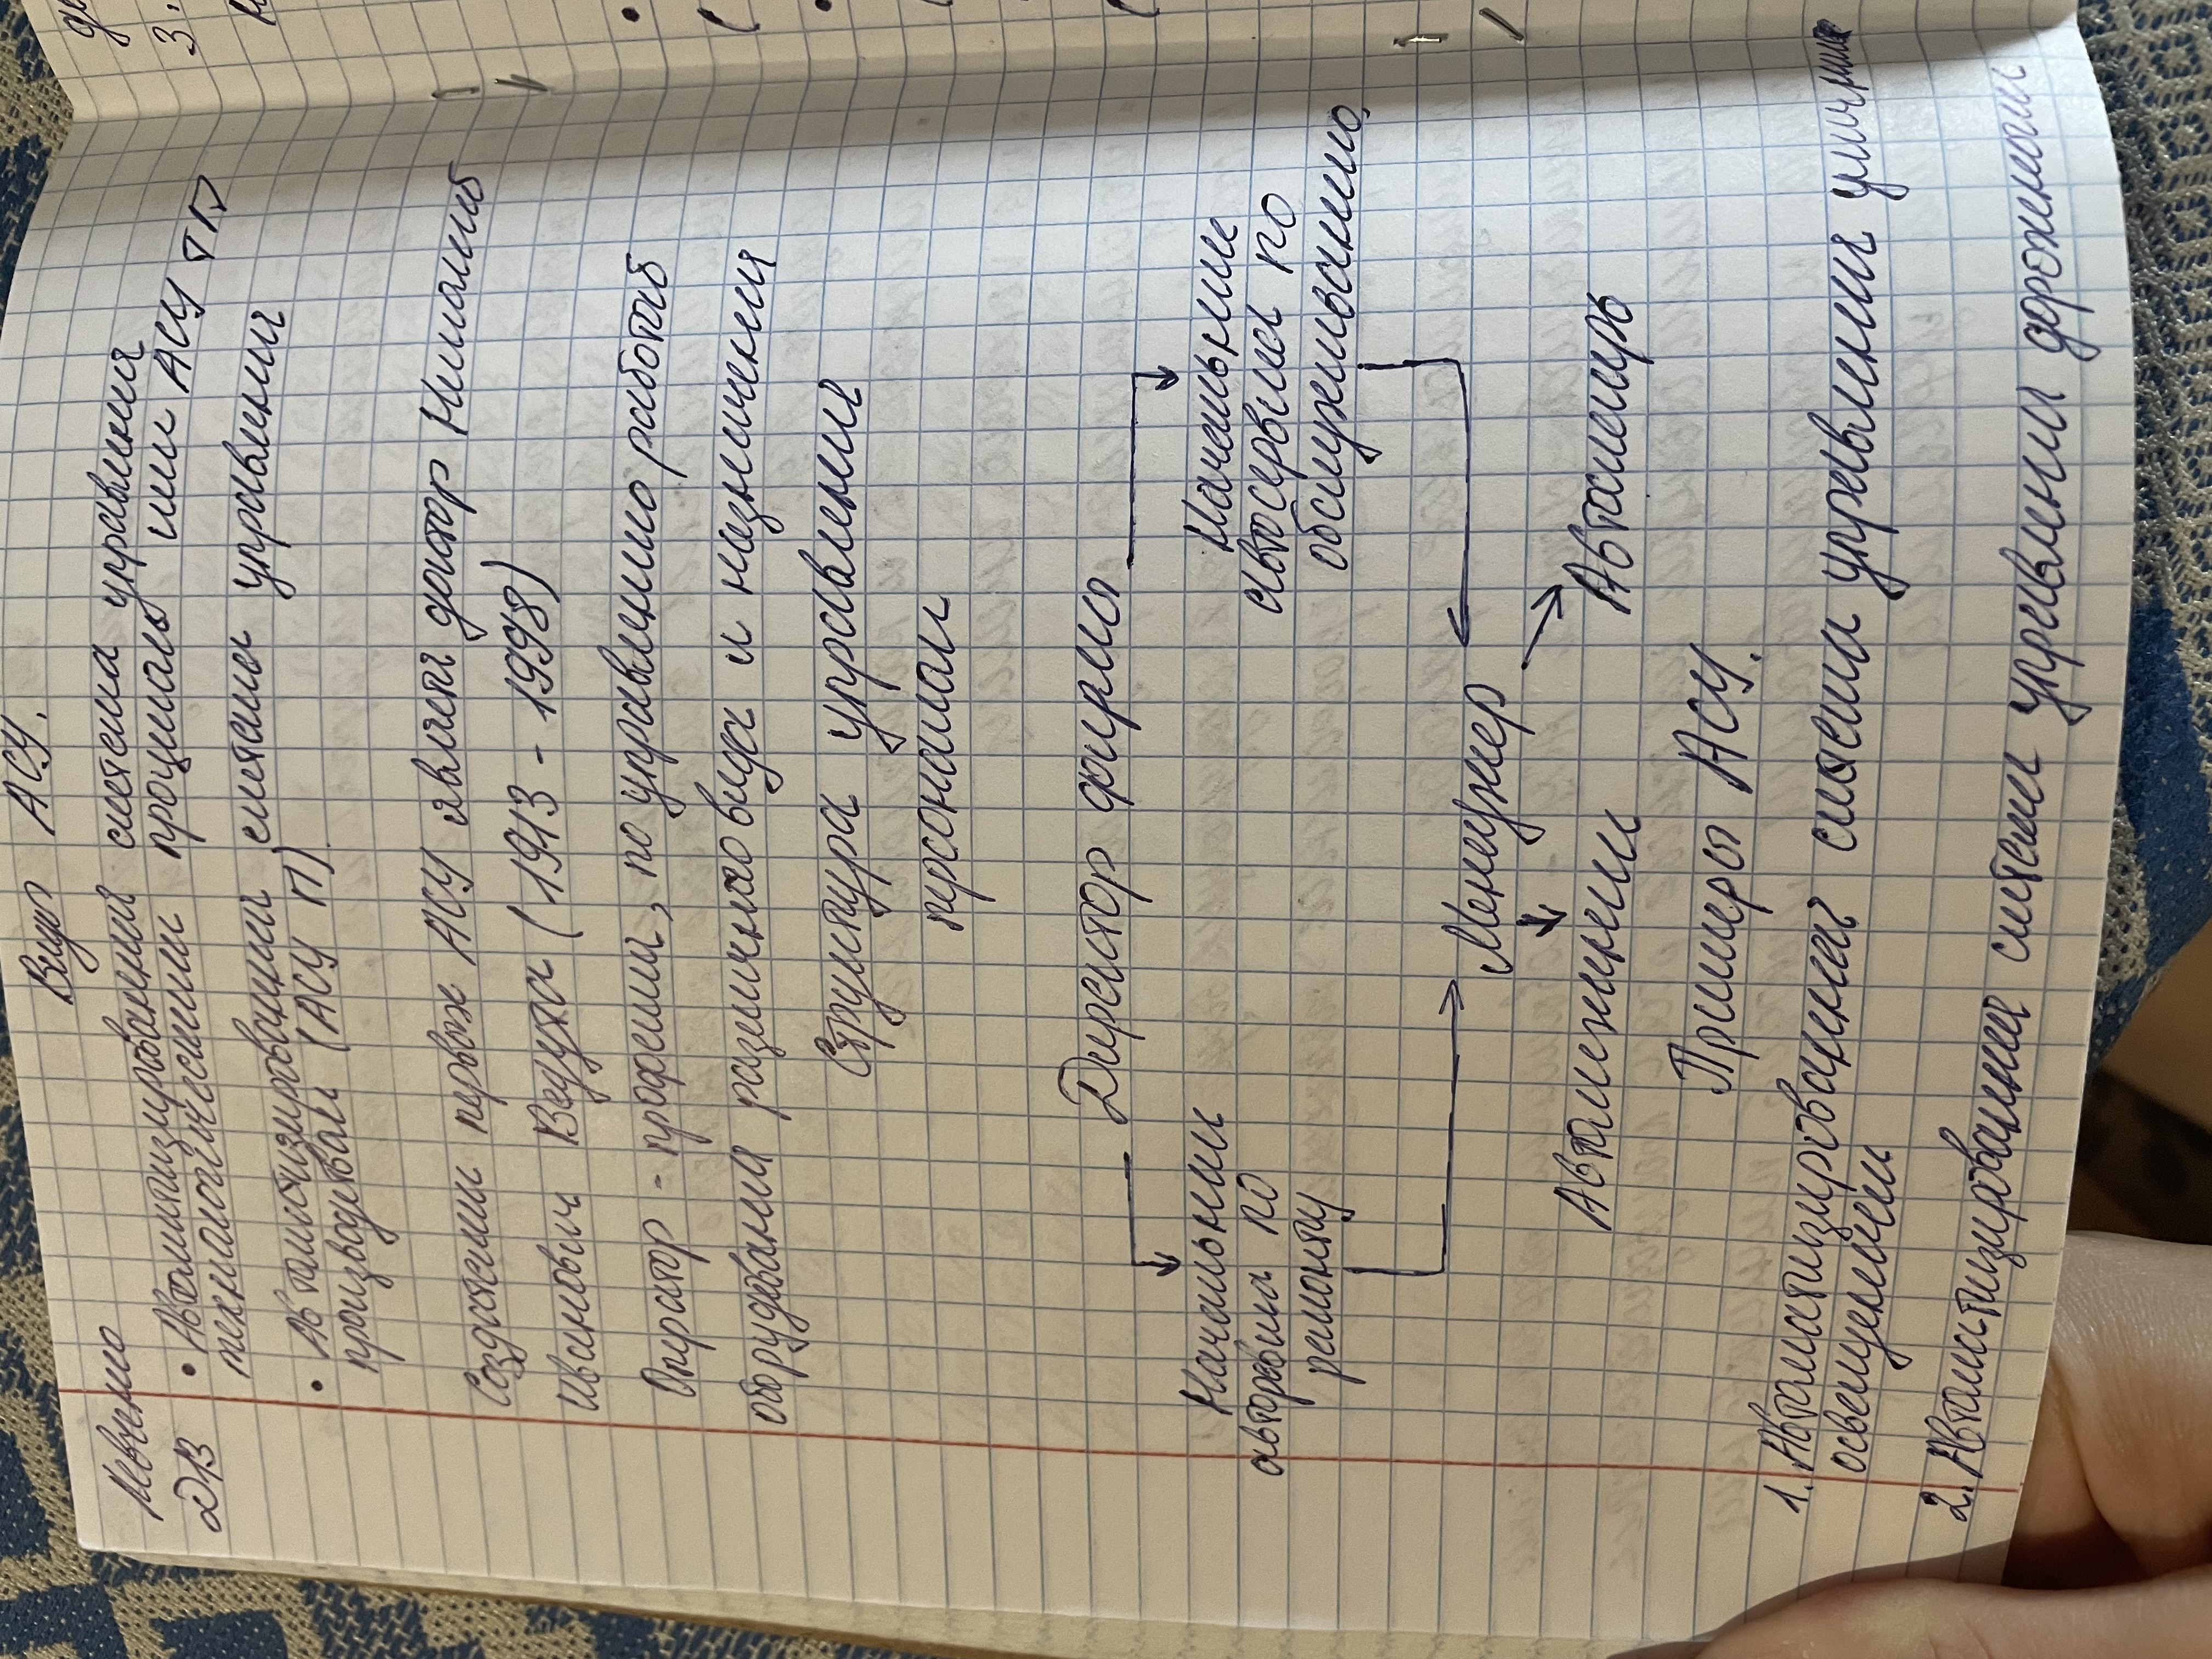 Виды АСУ.
Автоматизирования система управления
технологическими процессами или АСУ ТП
Автоматизировании системы управлении
производством (АСУ П)
Создателем первой АСУ являетя доктор Николай
Иванович Ведута (1913 - 1998)
Оператор - профессии, по управлению работой
оборудования различного вида и назначения
Структура управления
персоналам
Директор фирмы
Начальники
авторевиа по
ремонту
Начальние
автосервиса по
обслуживанию
Менеджер
Автоинженеы
Автомаляр
Примеры АСУ.
1. Автоматизированная система управления уличным
освещением
2. Автоматизирования системы управлени дорожными